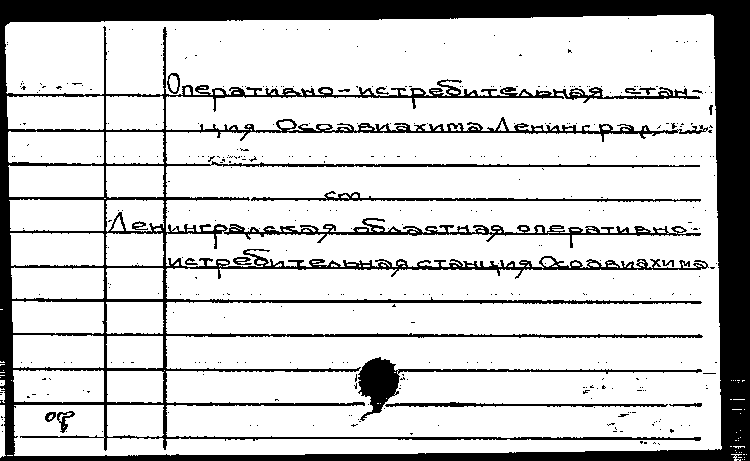 Оперативно-истребительная стан-
ция Осоавиахима. Ленинград.
см.
Ленинградская областная оперативно-
истребительная станция Осоавиахима.
оф